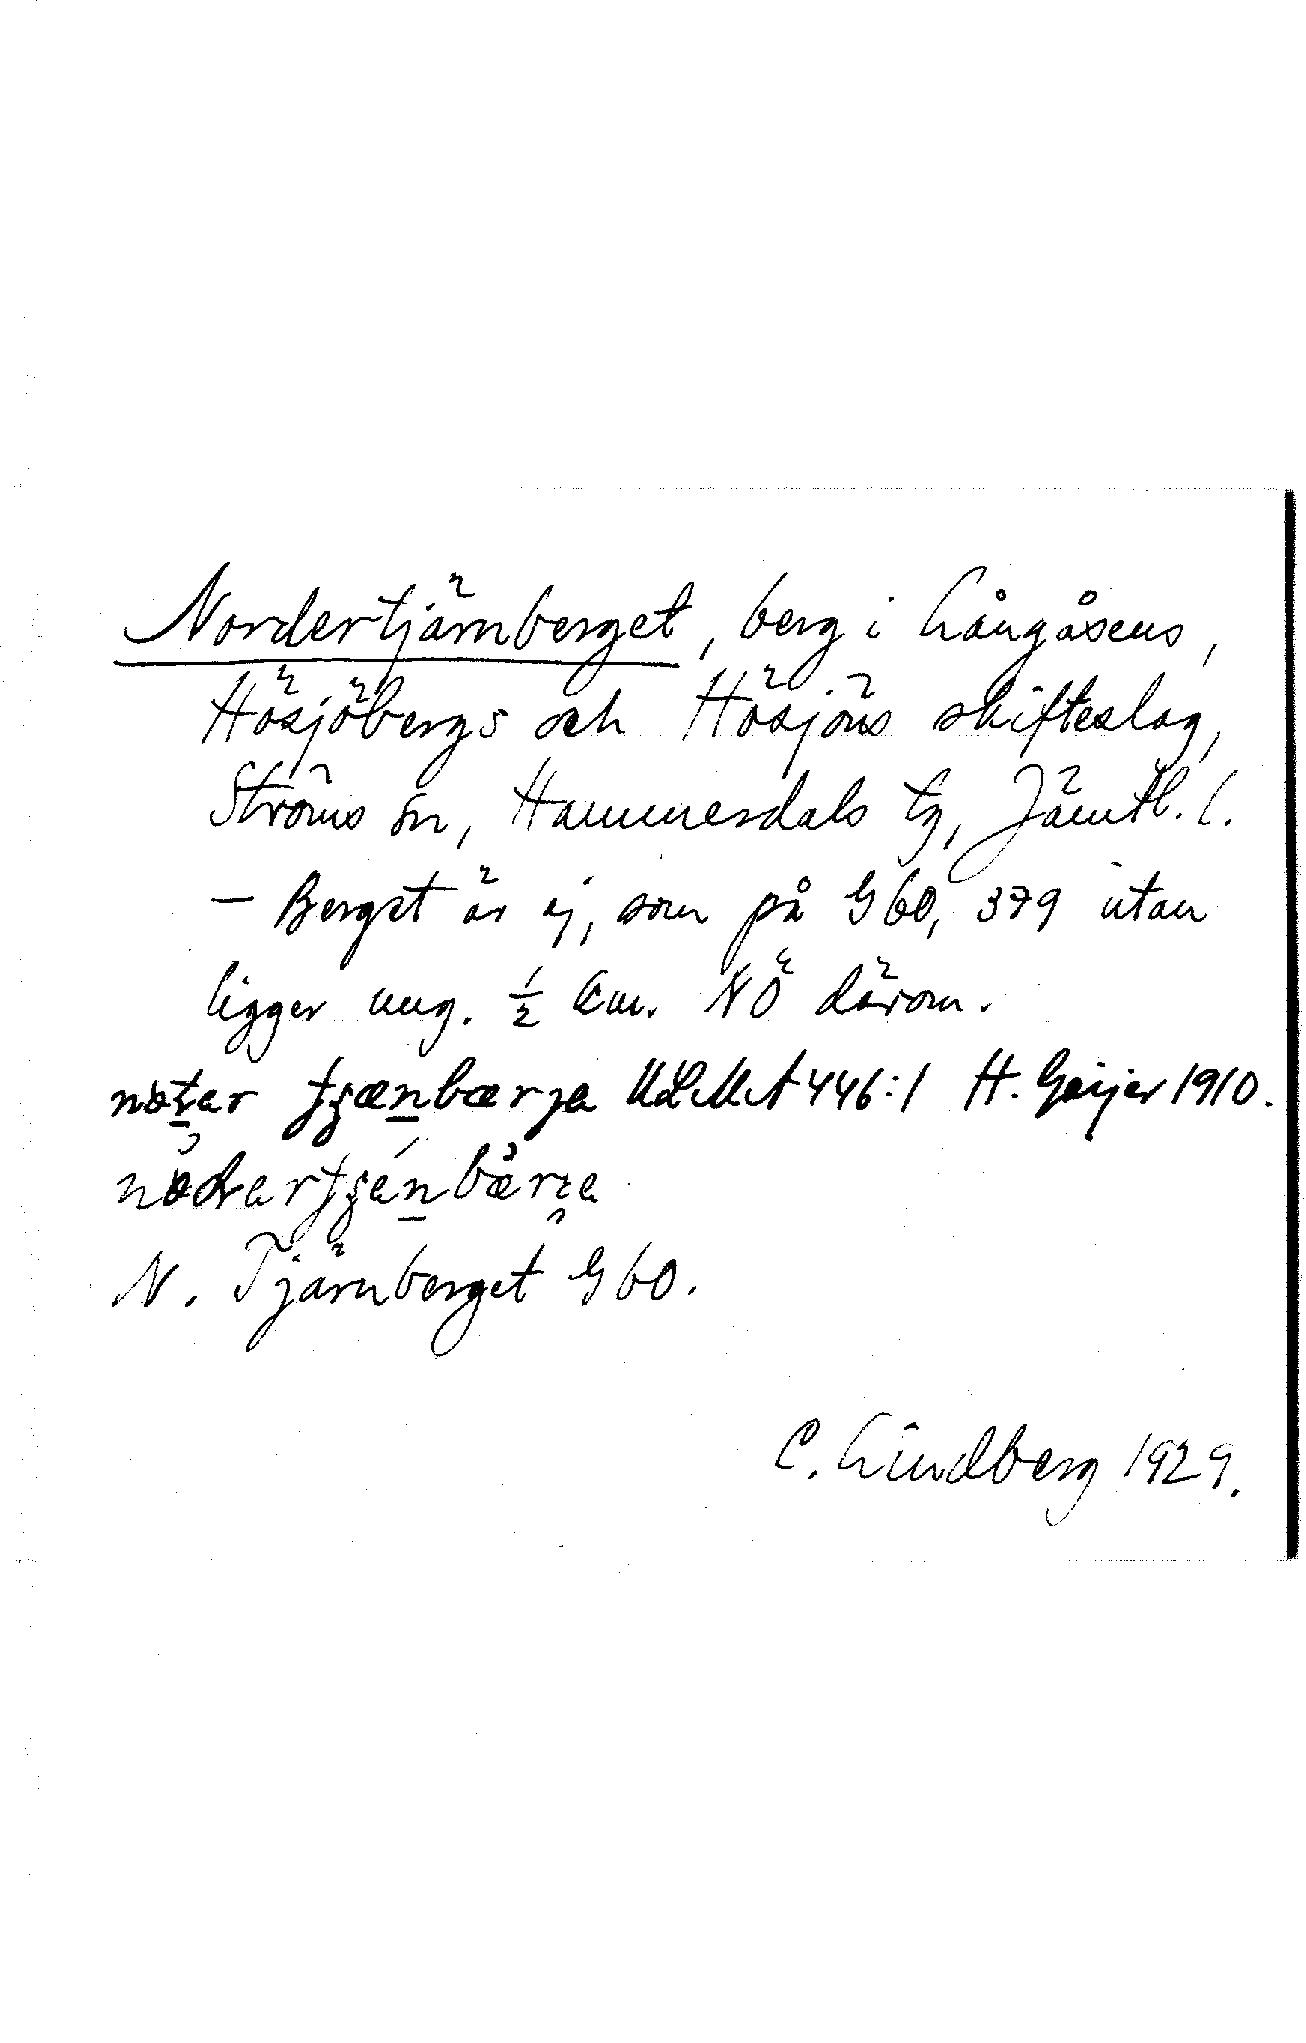 Nordertjärnberget, berg i Långåsens,
Hösjöbergs och Hösjöns skifteslag,
Ströms sn, Hammerdals tg, Jämtl. l.
— Berget är ej, som på G 60, 379 utan
ligger ung. ½ km. NÖ därom.
ULMA 446:1 H. Geijer 1910.
N. Tjärnberget G 60.
C. Lindberg 1929.